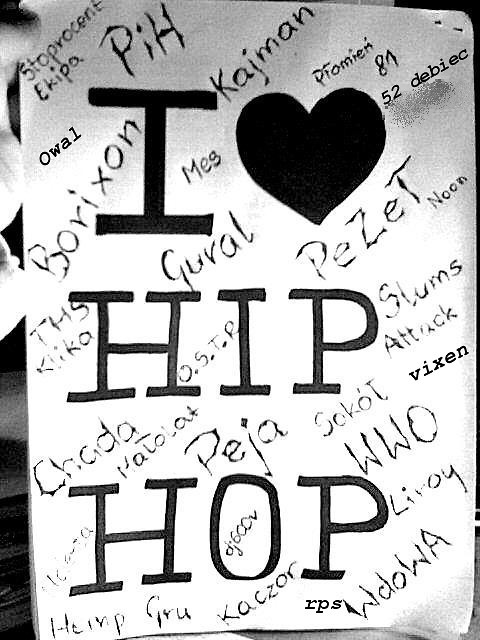 Stoprocent
Ekipa
PiH
Kajman
Płomień
81
52 debiec
Owal
I
Borixon
Mes
Gural
PeZeT
Noon
HIP
THS
Klika
O.S.T.R
Slums
Attack
vixen
Chada
Małolat
Peja
Sokół
WWO
Liroy
HOP
Hemp Gru
Kaczor
rps
WdoWA